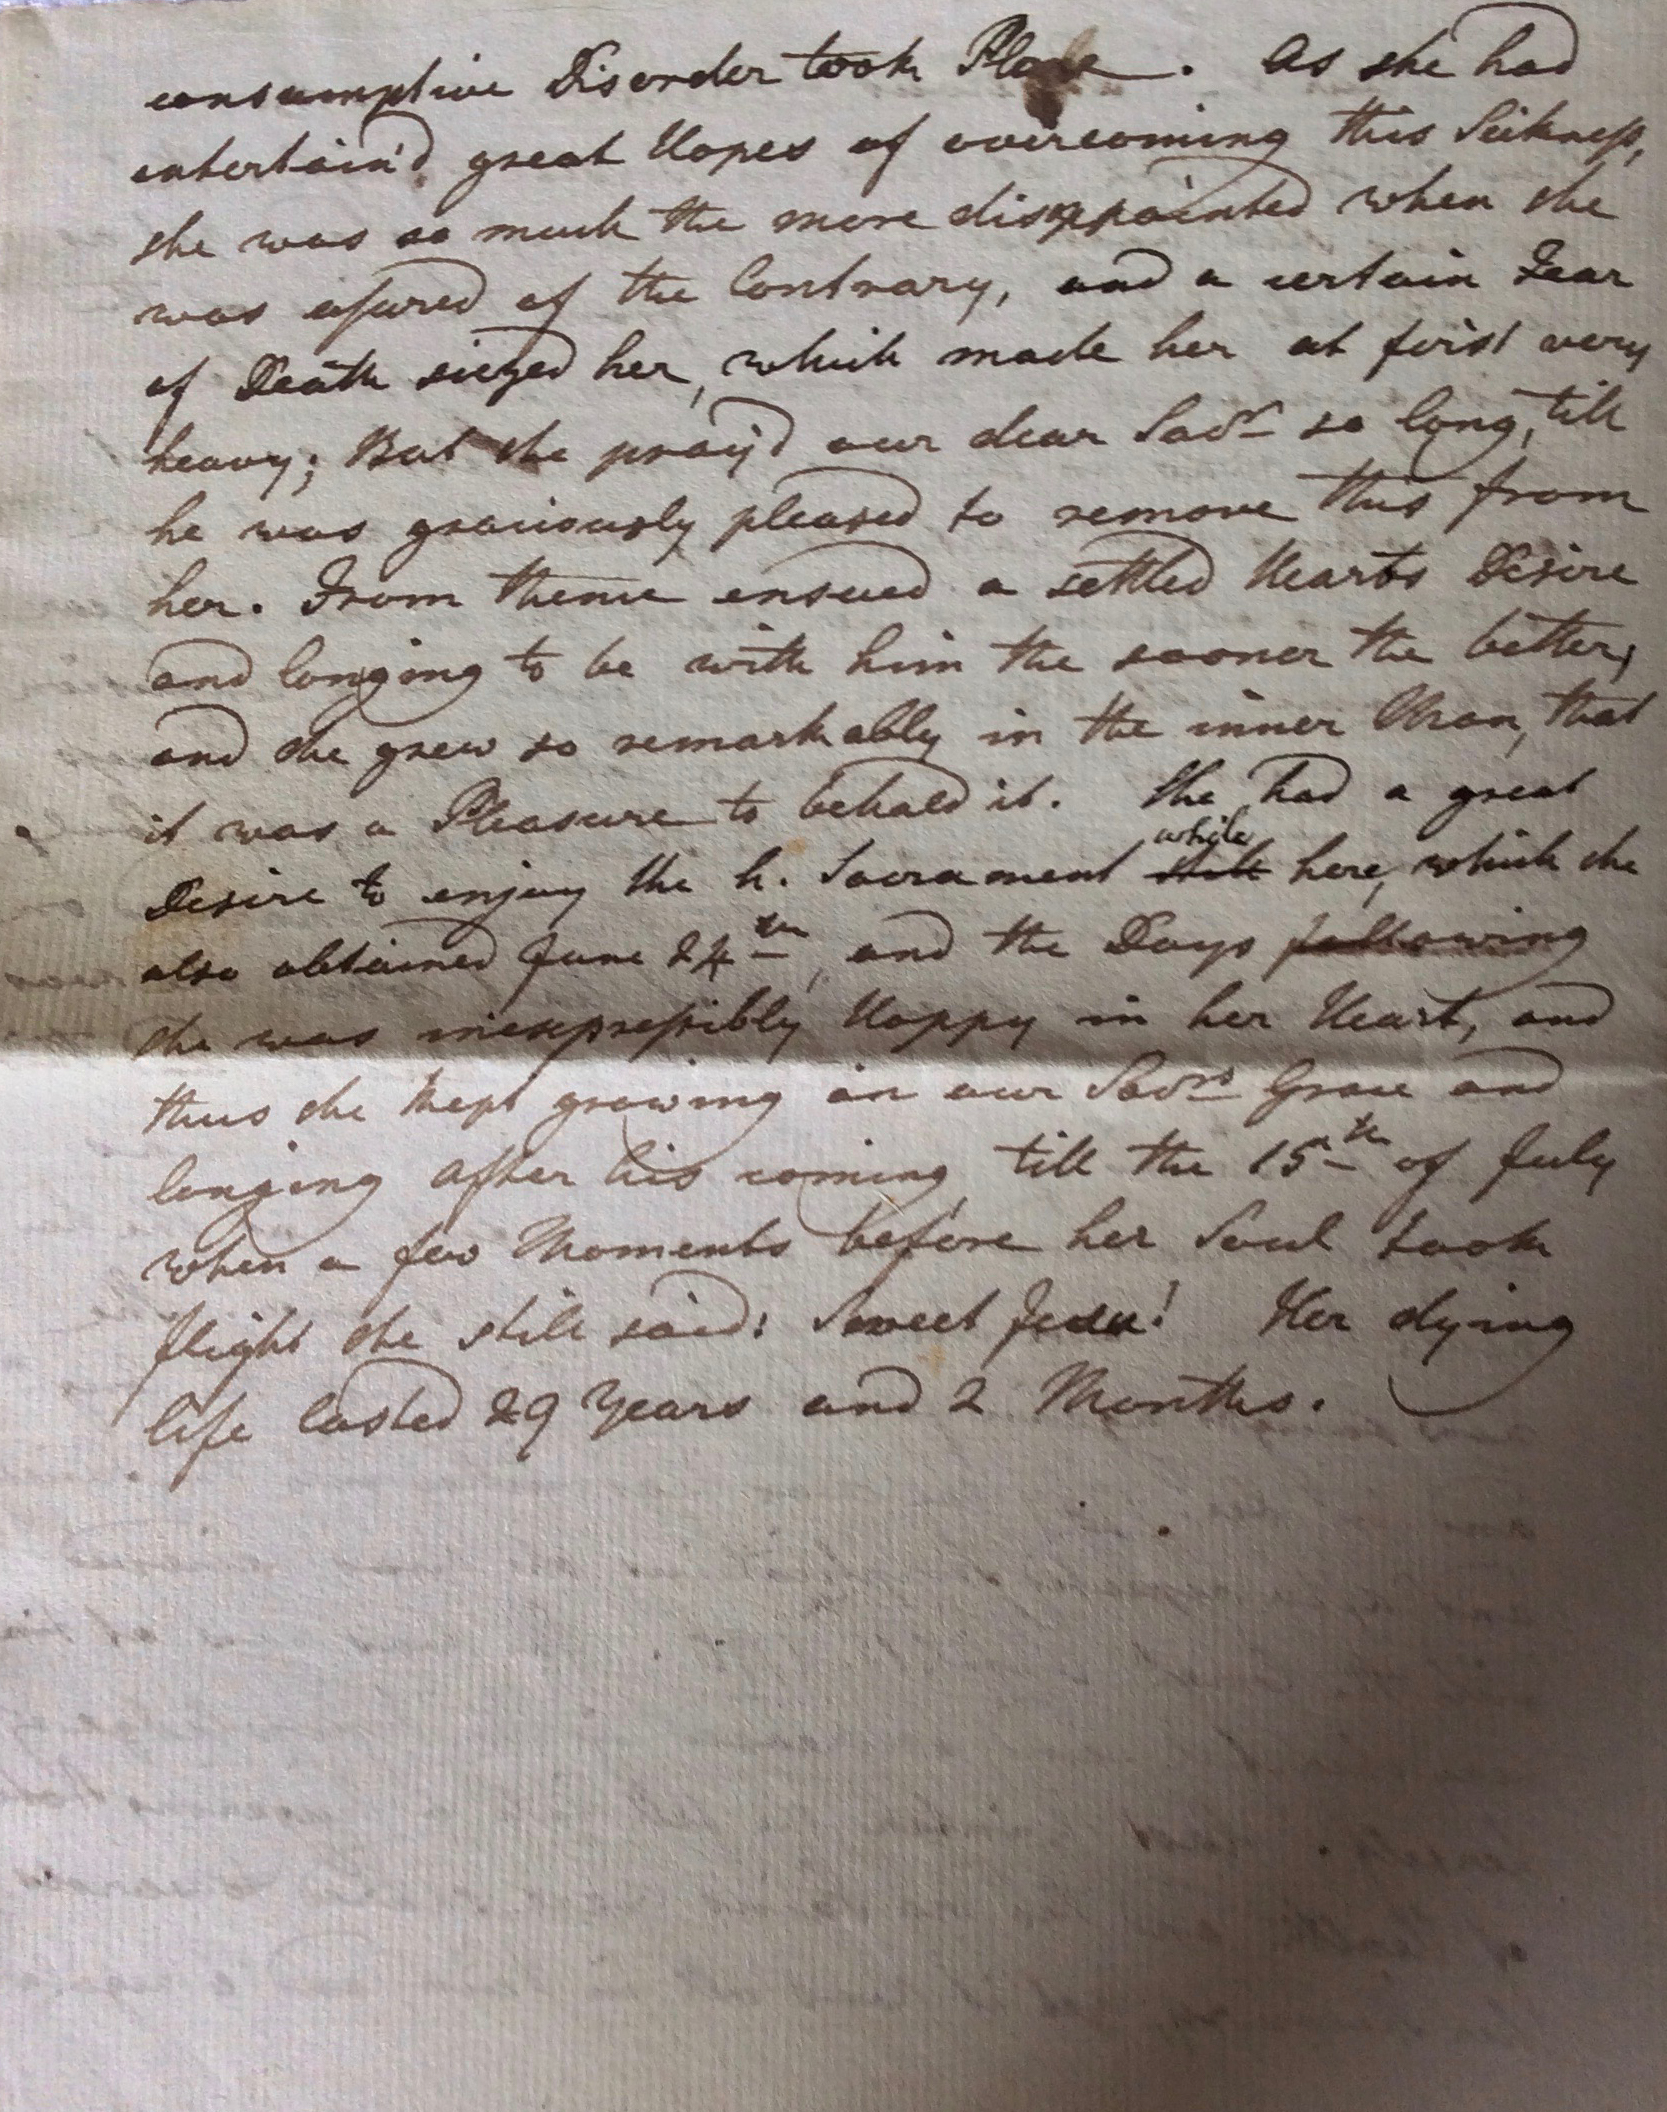 consumptive Disorder took Place. As she had
entertain'd great Hopes of overcoming this Sickness,
she was so much the more disappointed when she
was assured of the Contrary, and a certain Fear
of Death siezed her, which made her at first very
heavy; But she pray'd our dear Savr so long, till
he was graciously pleased to remove this from
her. From thence ensued a settled Hearts Desire
and longing to be with him the sooner the better,
and she grew so remarkably in the inner Man, that
it was a Pleasure to behold it. She had a great
while
Desire to enjoy the h. Sacrament still here, which she
also obtained June 24th, and the Days following
she was inexpressibly Happy in her Heart, and
thus she kept growing in our Savrs Grace and
longing after his coming till the 15th of July
when a few Moments before her Soul took
flight she still said: Sweet Jesu! Her dying
life lasted 29 Years and 2 Months.